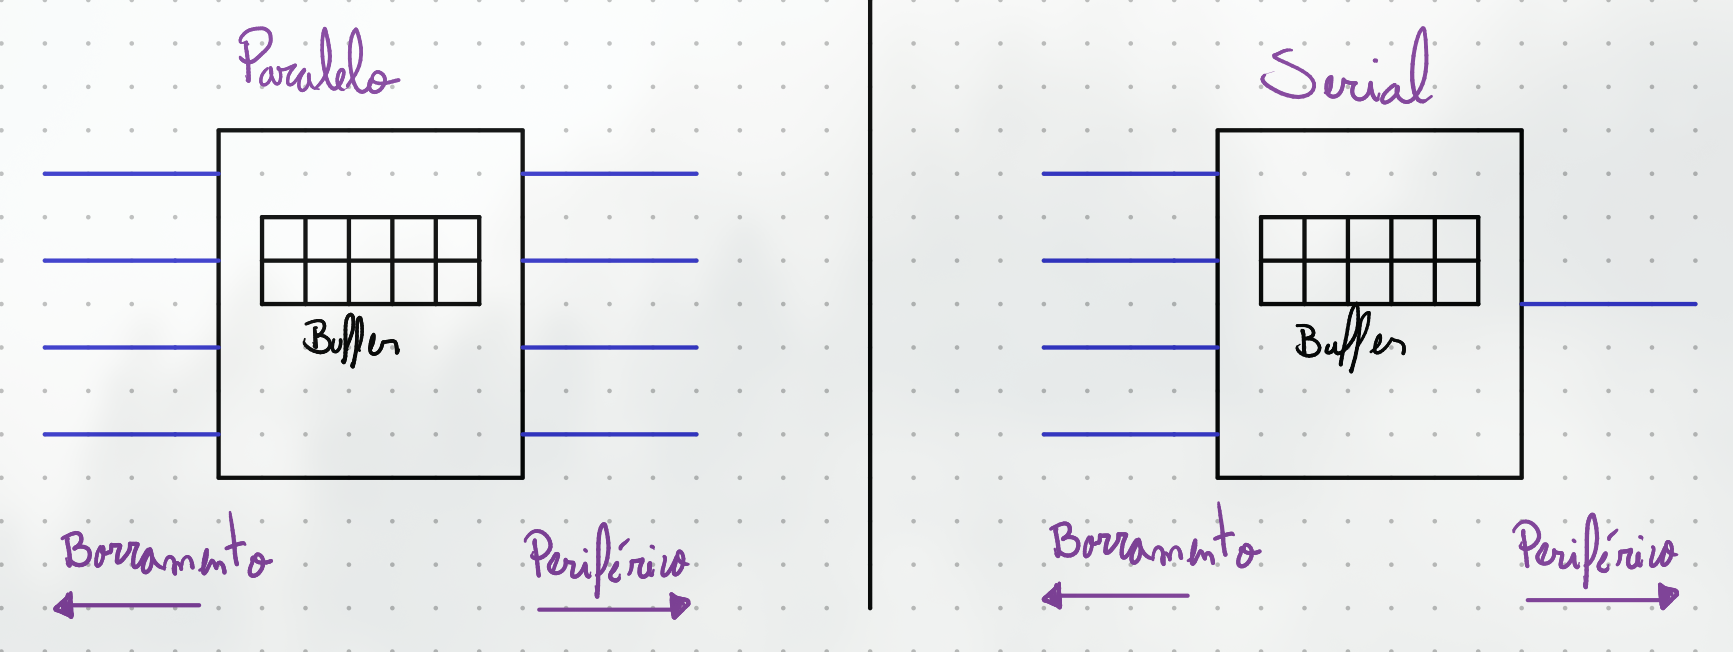 Paralelo
Buffer
Barramento
Periférico
Serial
Buffer
Barramento
Periférico